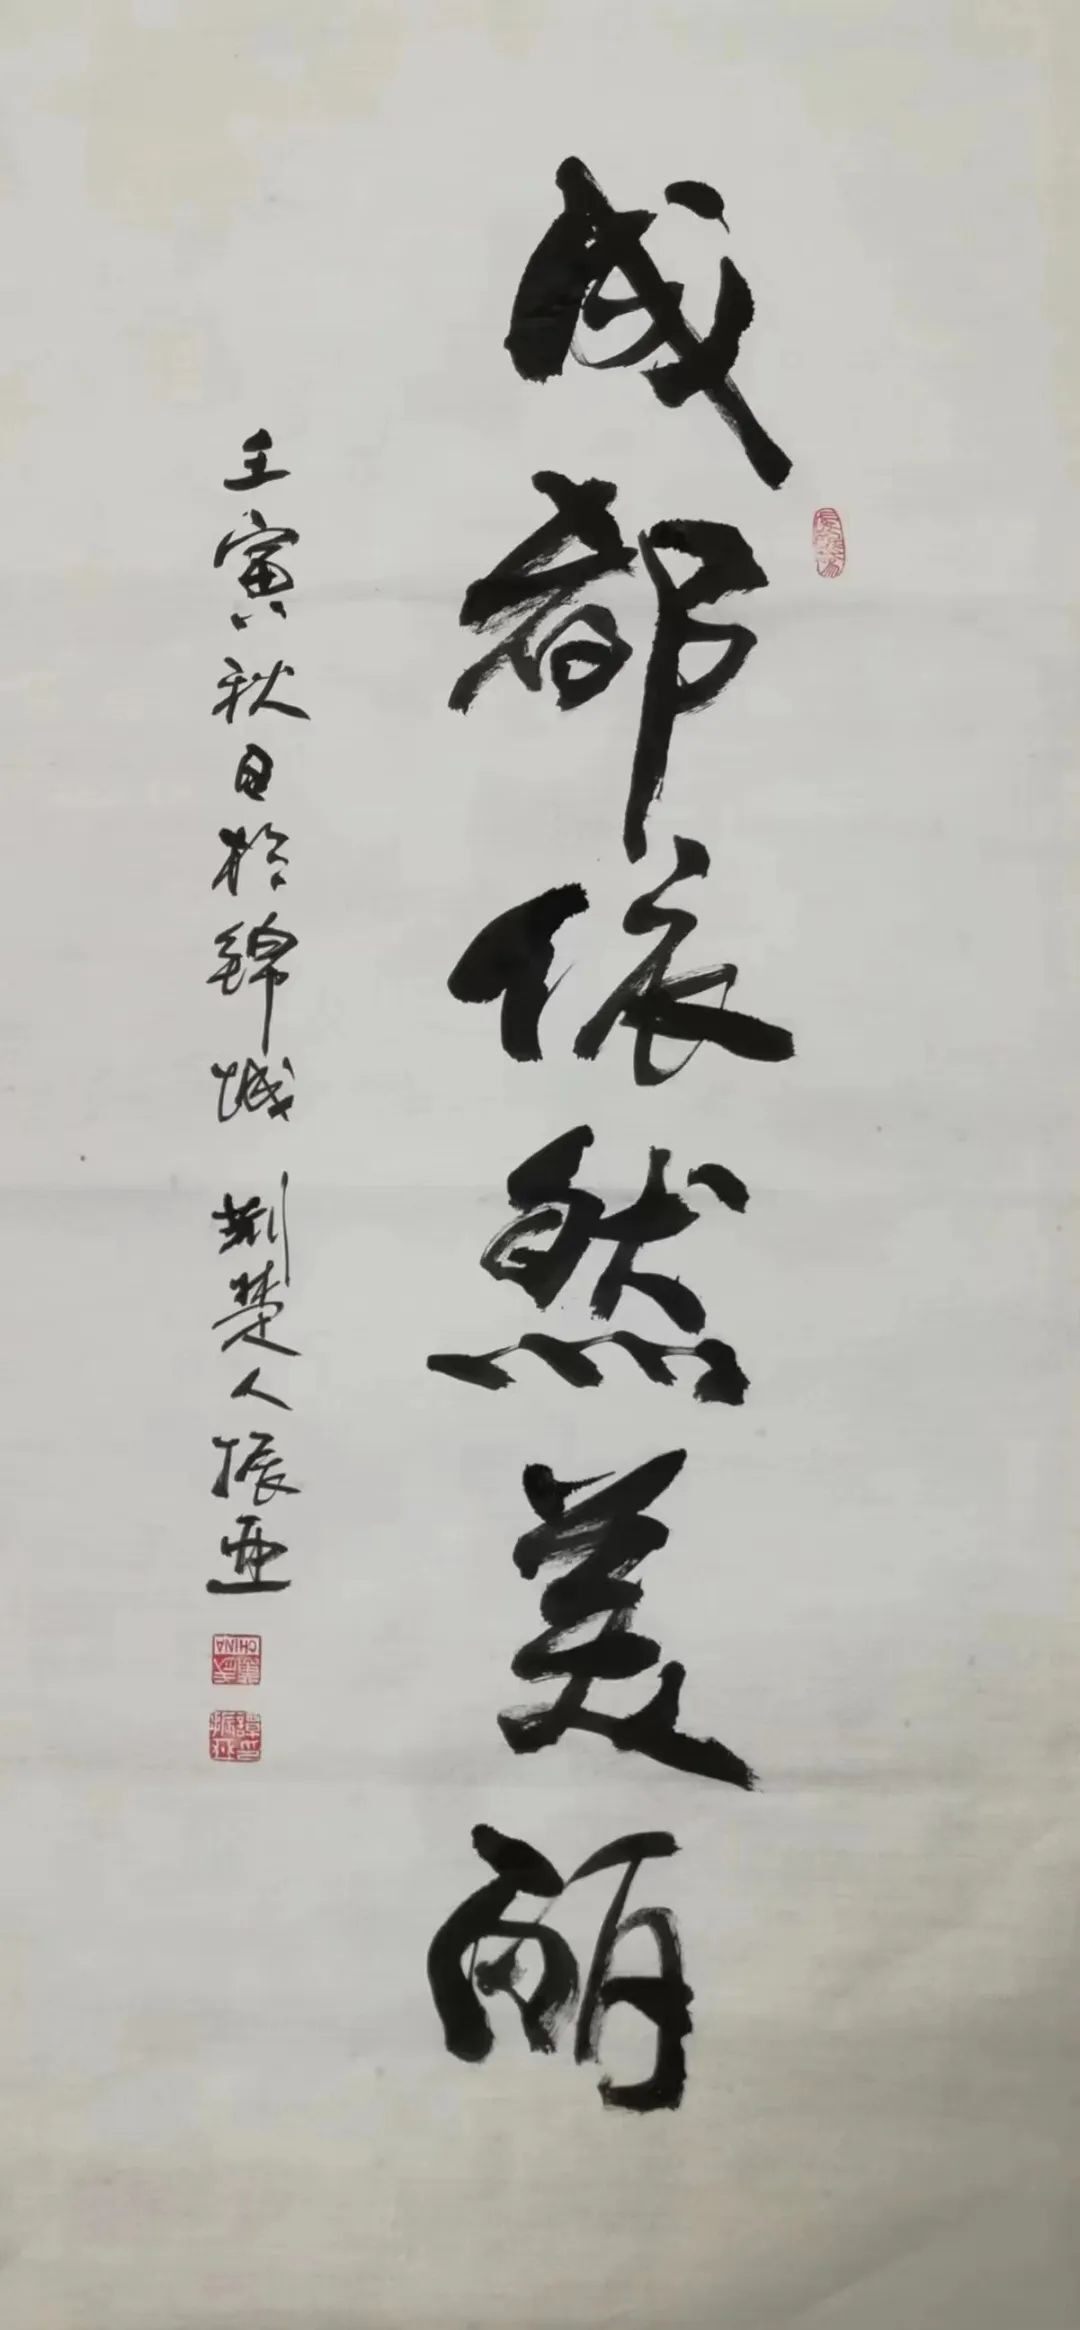 成都依然美丽
壬寅秋日於锦城 荆楚人振亚
CHINA